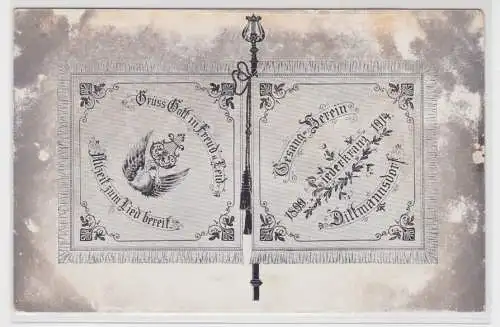 Grüss Gott in Freud u. Leid
Allzeit zum Lied bereit.
Gesang-Verein
Liederkranz
1899 1914
Dittmannsdorf